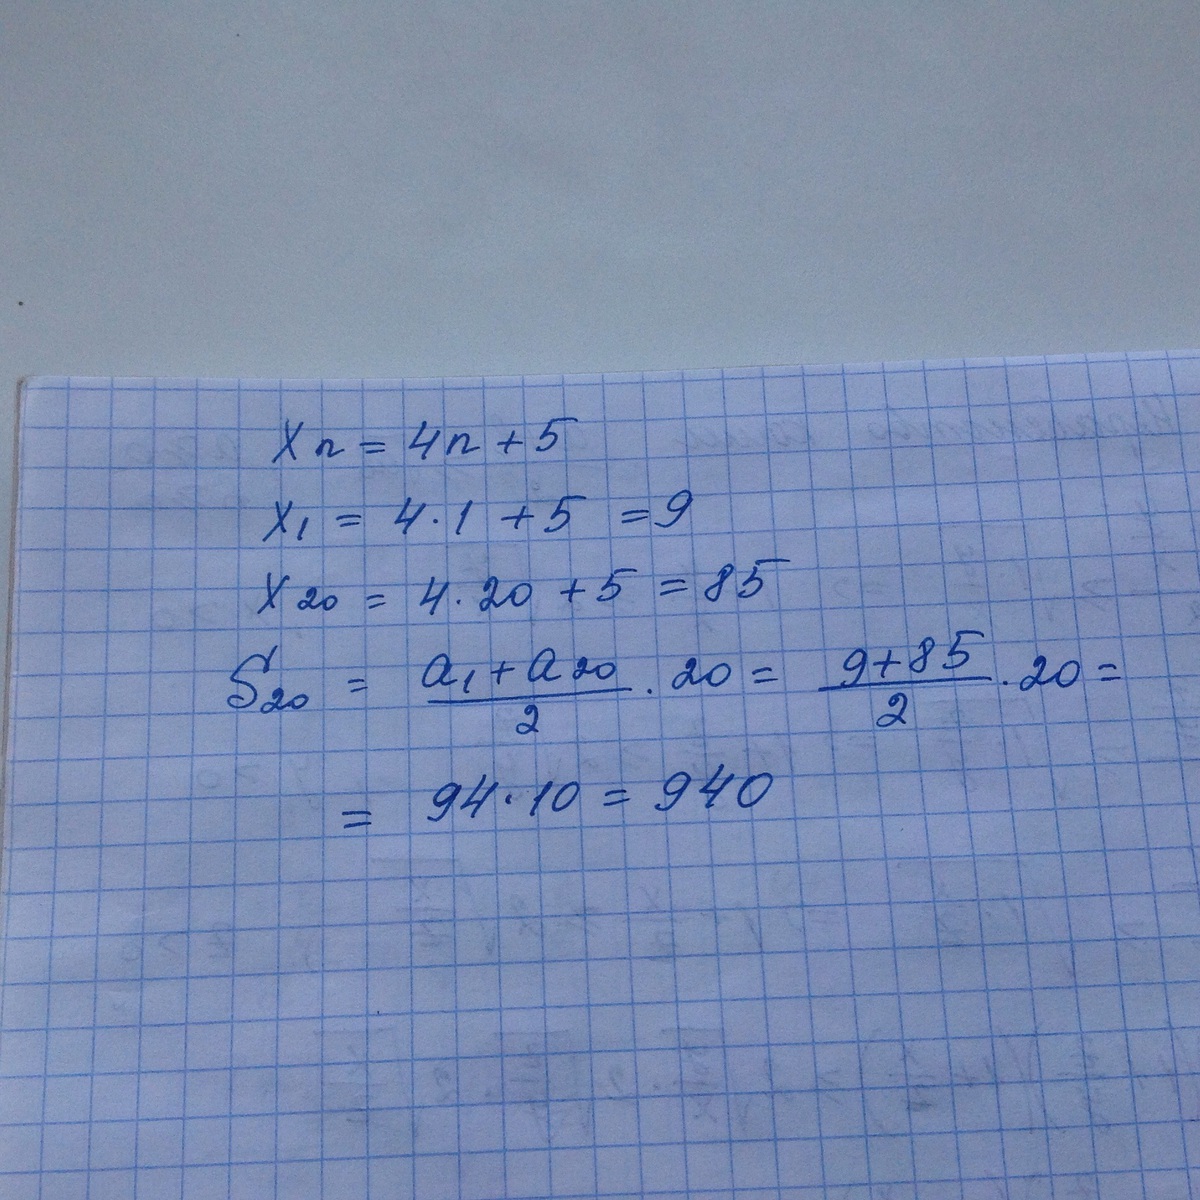 Xn = 4n + 5
X1 = 4·1 + 5 = 9
X20 = 4·20 + 5 = 85
S20 = (a1 + a20)/2 · 20 = (9+85)/2 · 20 =
= 94·10 = 940